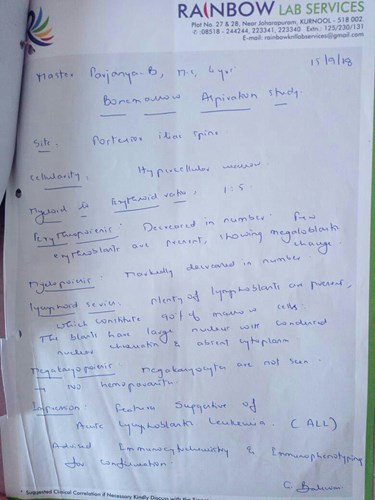 RAINBOW LAB SERVICES
Plot No. 27 & 28, Near Joharapuram, KURNOOL - 518 002.
✆ : 08518 - 244244, 223341, 223340 Extn.: 125/230/131
E-mail: rainbowknllabservices@gmail.com
15/9/18
Master Porjanya.B, M.S, 4 yr
Bonemarrow Aspiration Study.
Site: Posterior iliac spine
Cellularity: Hypercellular marrow.
Myeloid to Erythroid ratio: 1:5.
Erythropoiesis: Decreased in number. Few
erythroblasts are present, showing megaloblastic
change.
Myelopoiesis: Markedly decreased in number
Lymphoid series: Plenty of lymphoblasts are present,
which constitute 90% of marrow cells.
The blasts have large nucleus with condensed
nuclear chromatin & absent cytoplasm
Megakaryopoiesis: Megakaryocytes are not seen.
→ No hemoparasites.
Impression: Features Suggestive of
Acute Lymphoblastic Leukemia. (ALL)
Advised Immunocytochemistry & Immunophenotyping
for confirmation.
* Suggested Clinical Correlation if Necessary Kindly Discuss with the